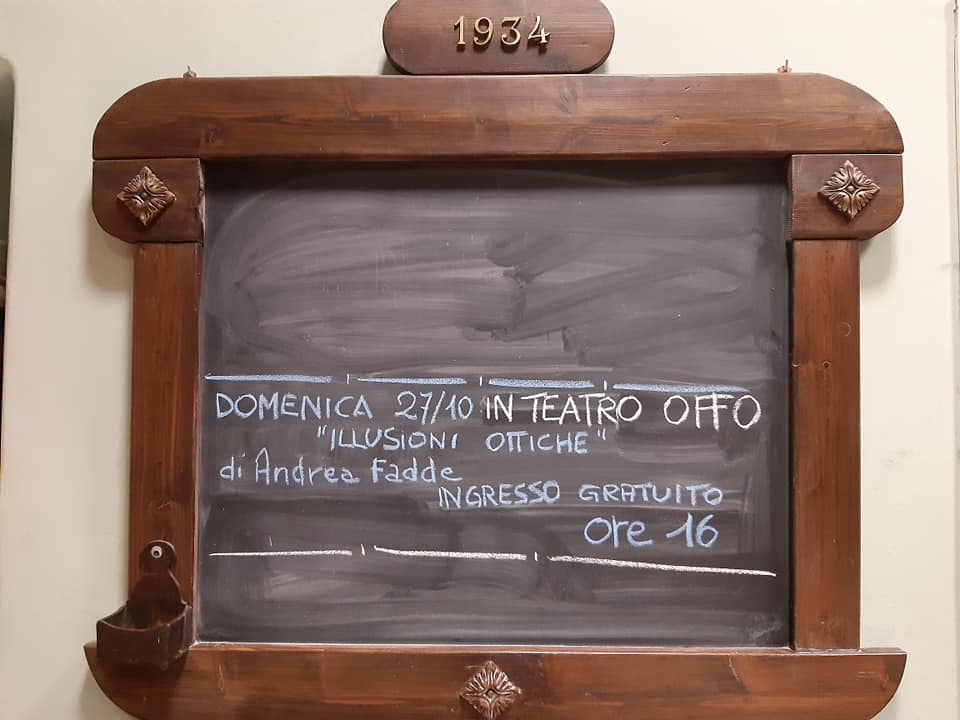 1934
DOMENICA 27/10 IN TEATRO OFFO
"ILLUSIONI OTTICHE"
di Andrea Fadde
INGRESSO GRATUITO
Ore 16